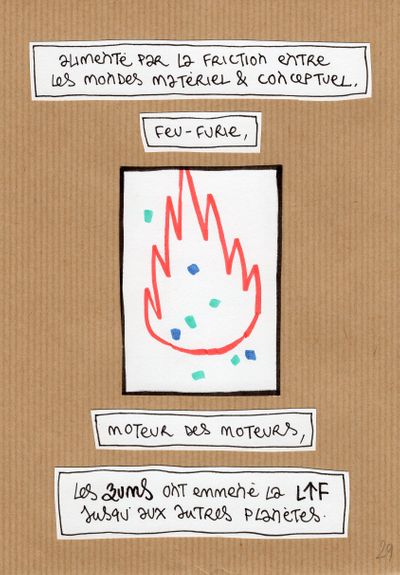 alimenté par la friction entre
les mondes matériel & conceptuel.
feu-furie,
moteur des moteurs,
les zums ont emmené la L↑F
jusqu'aux autres planètes.
29